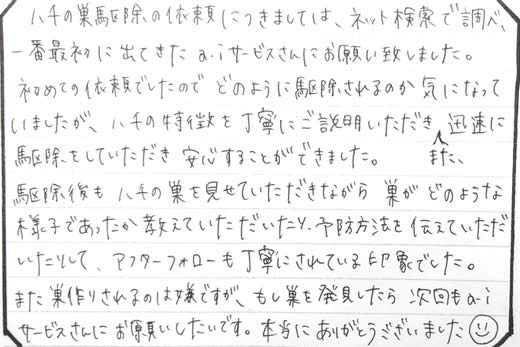 ハチの巣駆除の依頼につきましては、ネット検索で調べ、
一番最初に出てきた a.iサービスさんにお願い致しました。
初めての依頼でしたので どのように駆除されるのか 気になって
いましたが、ハチの特徴を丁寧にご説明いただき 迅速に
駆除をしていただき 安心することができました。 また、
駆除後も ハチの巣を見せていただきながら 巣が どのような
様子であったか 教えていただいたり、予防方法を 伝えていただ
いたりして、アフターフォローも 丁寧にされている印象でした。
また 巣作りされるのは嫌ですが、もし巣を発見したら 次回も a-i
サービスさんに お願いしたいです。本当に ありがとうございました